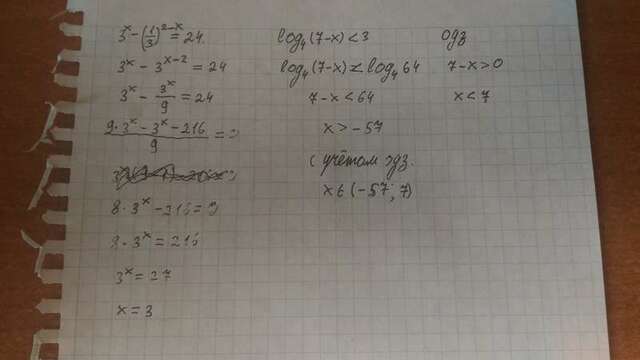 3^x - (1/3)^{2-x} = 24.
3^x - 3^{x-2} = 24
3^x - 3^x/9 = 24
(9·3^x - 3^x - 216)/9 = 0
8·3^x - 216 = 0
8·3^x = 216
3^x = 27
x = 3
log₄(7-x) < 3
log₄(7-x) < log₄64
7-x < 64
x > -57
с учётом одз.
x ∈ (-57; 7)
одз
7-x > 0
x < 7